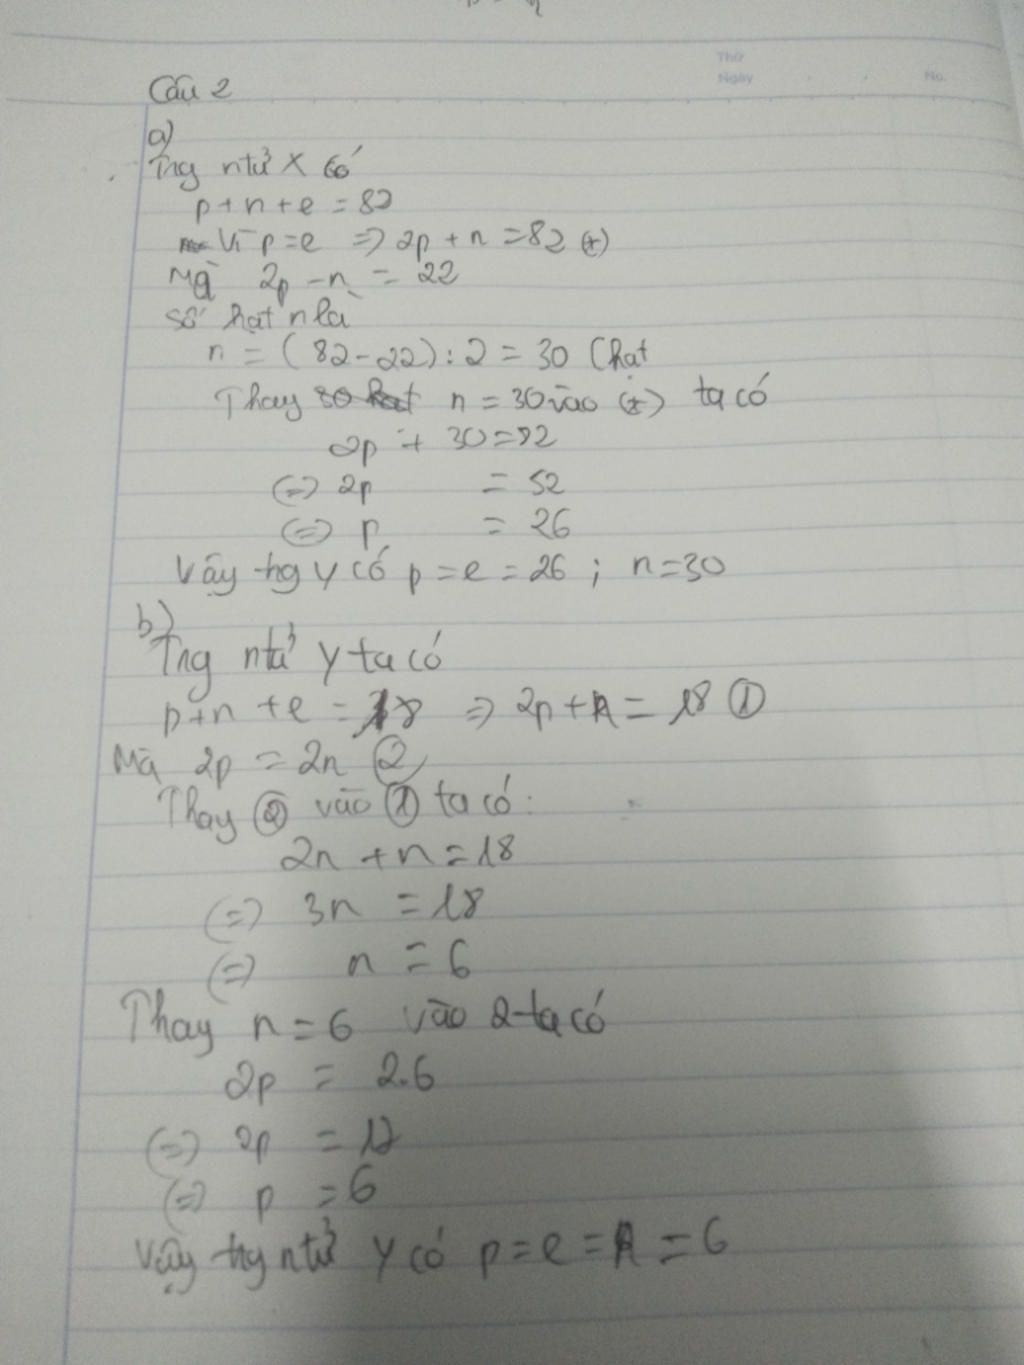 Thứ
Ngày No.
Câu 2
a)
Trg ntử X có
p+n+e = 82
Vì p=e => 2p+n =82 (*)
Mà 2p -n = 22
số hạt n là
n = (82-22):2 = 30 (hạt
Thay n = 30 vào (*) ta có
2p + 30=82
(=) 2p = 52
(=) p = 26
Vây trg Y có p = e = 26 ; n=30
b)
Trg ntử Y ta có
p+n +e = 18 => 2p+n = 18 ①
Mà 2p = 2n ②
Thay ② vào ① ta có:
2n +n =18
(=) 3n = 18
(=) n = 6
Thay n = 6 vào 2 ta có
2p = 2.6
(=) 2p = 12
(=) p = 6
Vậy trg ntử Y có p=e=n=6